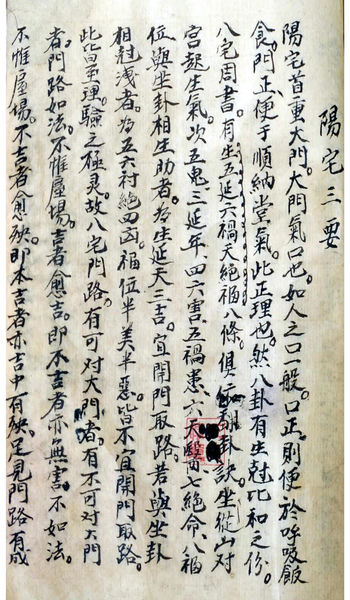 陽宅三要
陽宅首重大門。大門氣口也。如人之口一般。口正。則便於呼吸飯
食。門正便于順納堂氣。此正理也。然八卦有生尅比和之分。
八宅周書。有生五延六禍天絕福八條。俱 卦訣。坐從山对
宮起生氣。次五鬼三延年。四六 五禍患。六天醫七絕命。八福
位與坐卦相生助者。為生延天三吉。宜開門取路。若與坐卦
相尅洩者。為五六禍絕四凶。福位半美半惡。皆不宜開門取路。
此比量理。驗之極灵。故八宅門路。有可对大門者。有不可对大門
者。門路如法。不惟屋場。吉者愈吉。即不吉者亦無害。不如法。
不惟屋場。不吉者愈殃。即本吉者亦吉中有殃。足見門路有成